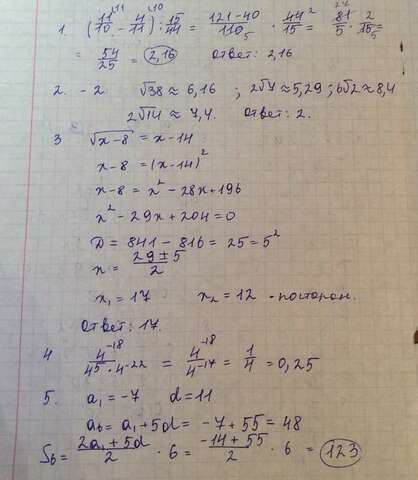 1. (11/10 - 4/11) : 15/44 = (121-40)/110 · 44/15 = 81/5 · 2/15 =
= 54/25 = 2,16 Ответ: 2,16
2. - 2. √38 ≈ 6,16 ; 2√7 ≈ 5,29 ; 6√2 ≈ 8,4
2√14 ≈ 7,4. Ответ: 2.
3 √x-8 = x-14
x-8 = (x-14)²
x-8 = x² - 28x + 196
x² - 29x + 204 = 0
D = 841 - 816 = 25 = 5²
x = (29 ± 5)/2
x₁ = 17 x₂ = 12 - посторон.
Ответ: 17.
4. 4⁻¹⁸/(4⁵ · 4⁻²²) = 4⁻¹⁸/4⁻¹⁷ = 1/4 = 0,25
5. a₁ = -7 d = 11
a₆ = a₁ + 5d = -7 + 55 = 48
S₆ = (2a₁ + 5d)/2 · 6 = (-14 + 55)/2 · 6 = 123